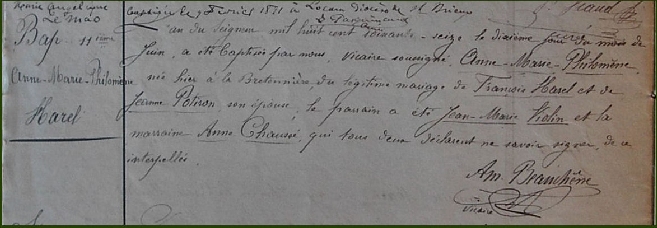 Le Mao
Bap. 11ème
Anne-Marie-Philomène
Harel
Février 1851 à Locarn Diocèse de St Brieuc
L'an du Seigneur mil huit cent soixante-seize le dixième jour du mois de
Juin, a été baptisée par nous Vicaire soussigné, Anne-Marie-Philomène,
née hier à la Bretonnière, du légitime mariage de François Harel et de
Jeanne Potiron son épouse, le parrain a été Jean-Marie et la
marraine Anne Chaussé qui tous deux déclarent ne savoir signer, de ce
interpellés.
Am. Beauchêne
Vicaire